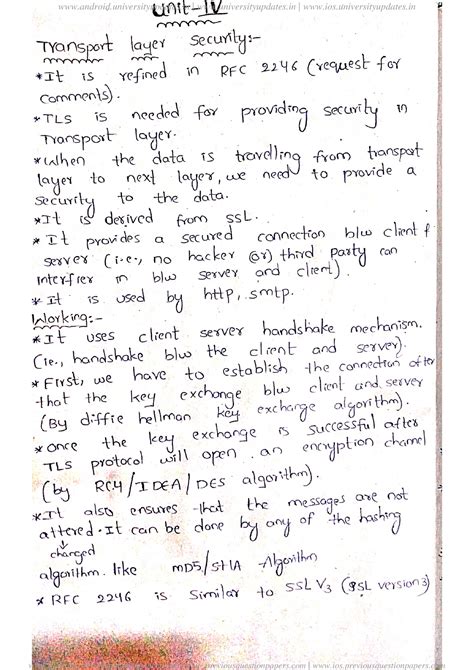 www.android.universityupdates.in | www.universityupdates.in | www.ios.universityupdates.in
Unit-IV
Transport layer security:-
*It is refined in RFC 2246 (request for
comments).
*TLS is needed for providing security in
Transport layer.
*When the data is travelling from transport
layer to next layer, we need to provide a
security to the data.
*It is derived from SSL.
*It provides a secured connection b/w client &
server (i.e., no hacker (or) third party can
interfier in b/w server and client).
*It is used by http, smtp.
Working:-
*It uses client server handshake mechanism.
(ie., handshake b/w the client and server).
*First, we have to establish the connection after
that the key exchange b/w client and server
(By diffie hellman key exchange algorithm).
*once the key exchange is successful after
TLS protocol will open an encryption channel
(by RC4/IDEA/DES algorithm).
*It also ensures that the messages are not
altered. It can be done by any of the hashing
changed
algorithm. like MD5/SHA Algorithm
*RFC 2246 is similar to SSL V3 (SSL version 3)
www.previousquestionpapers.com | www.ios.previousquestionpapers.com